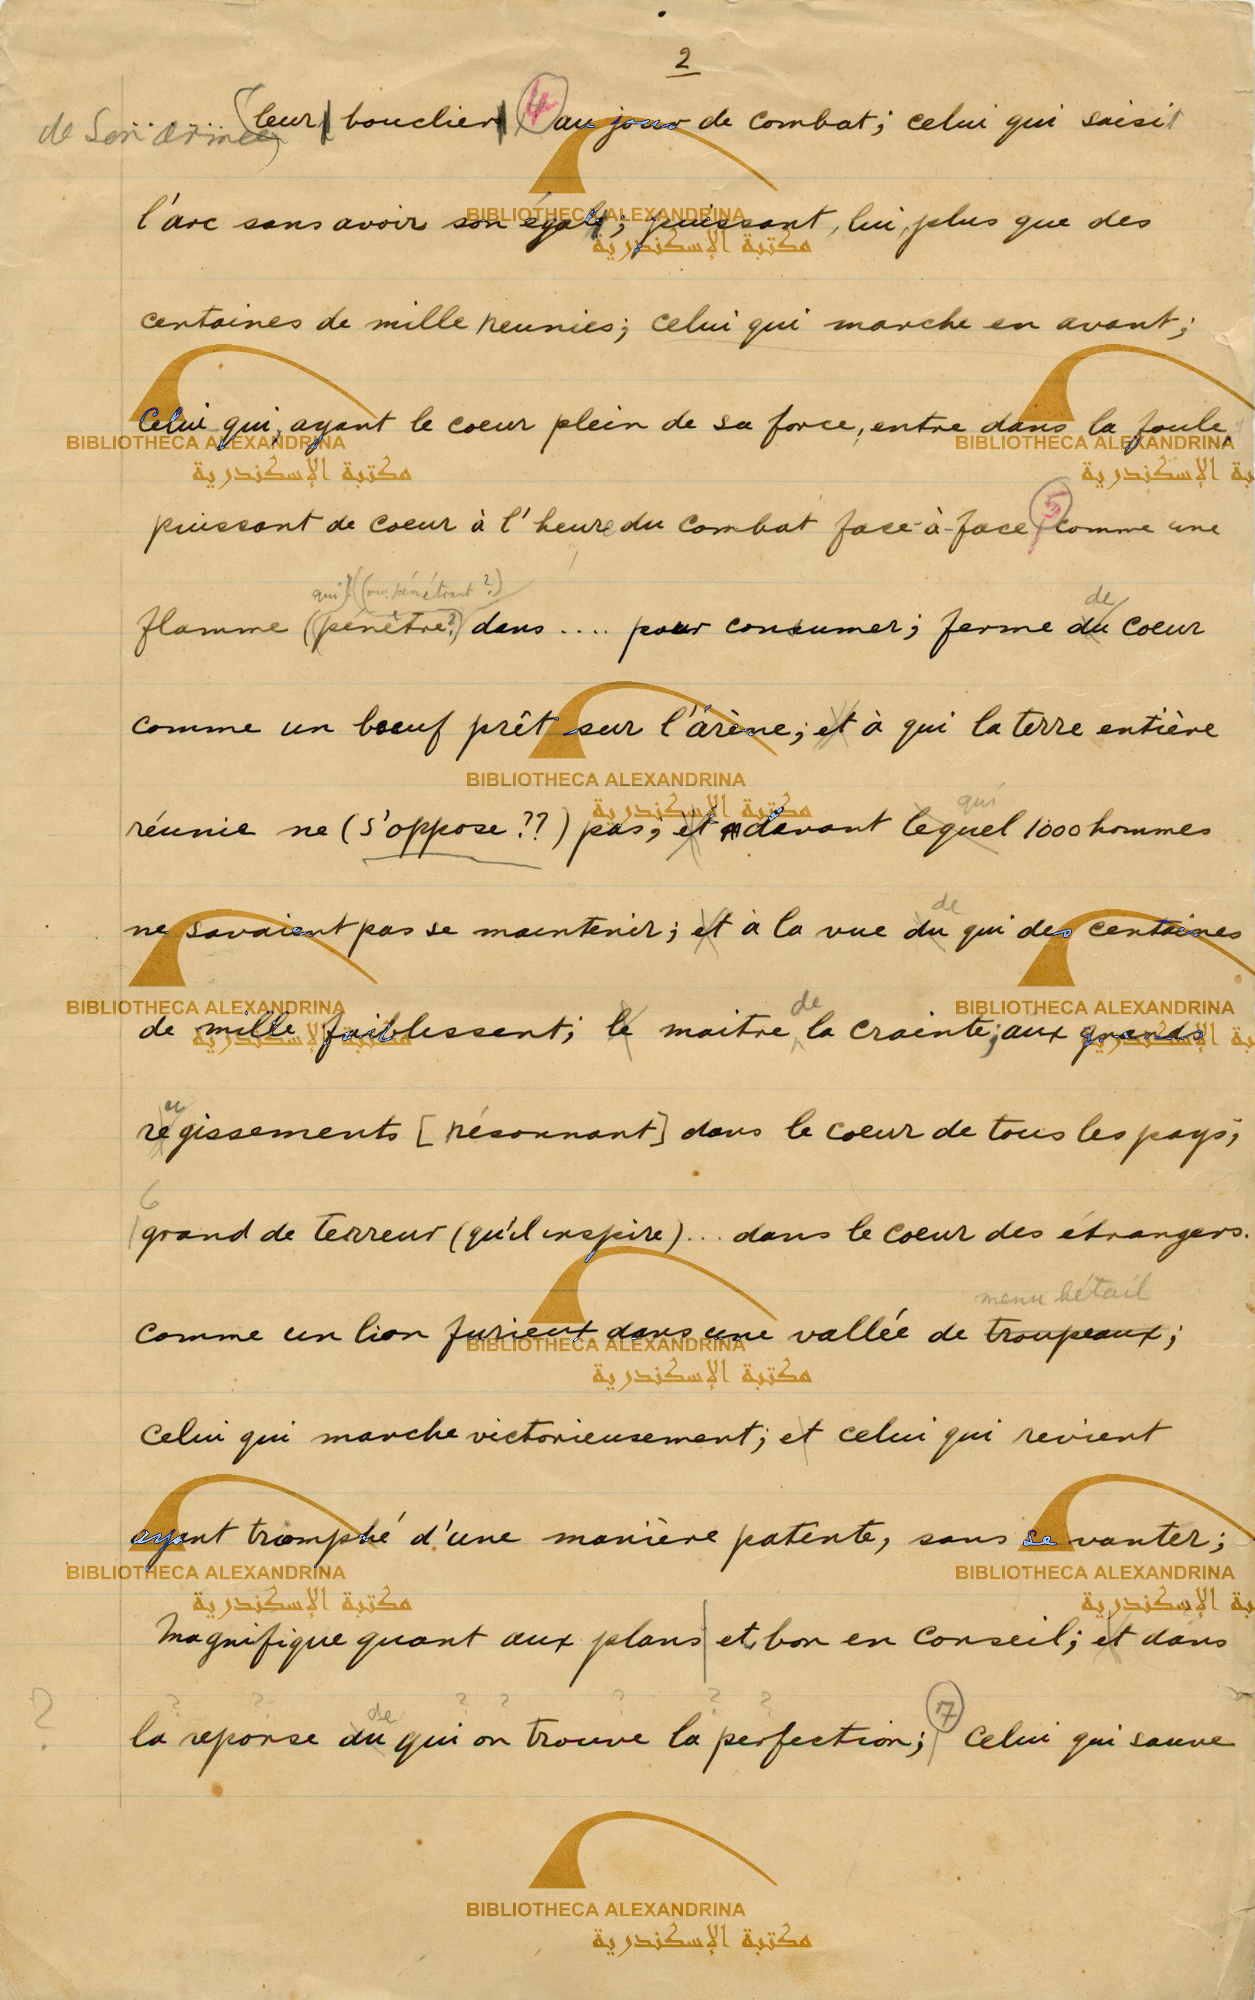 2
de son armée (leur) bouclier, 4 au jour de combat; celui qui saisit
l'arc sans avoir son égal; puissant, lui, plus que des
centaines de mille reunies; celui qui marche en avant;
Celui qui, ayant le coeur plein de sa force, entre dans la foule,
puissant de coeur à l'heure du combat face-à-face, 5 comme une
qui? (ou pénétrant?)
flamme (pénètre?) dans .... pour consumer; ferme du coeur
de
comme un boeuf prêt sur l'arène; et à qui la terre entière
réunie ne (s'oppose ??) pas; et devant lequel 1000 hommes
qui
ne savaient pas se maintenir; et à la vue du qui des centaines
de
de mille faiblessent; le maitre la crainte; aux grands
de
regissements [résonnant] dans le coeur de tous les pays;
u
6
grand de terreur (qu'il inspire)... dans le coeur des étrangers.
menu bétail
comme un lion furieux dans une vallée de troupeaux;
celui qui marche victorieusement; et celui qui revient
ayant triomphé d'une manière patente, sans se vanter;
Magnifique quant aux plans et bon en conseil; et dans
? ? de ? ? ? ? ?
? la reponse du qui on trouve la perfection; 7 celui qui sauve
BIBLIOTHECA ALEXANDRINA
مكتبة الإسكندرية